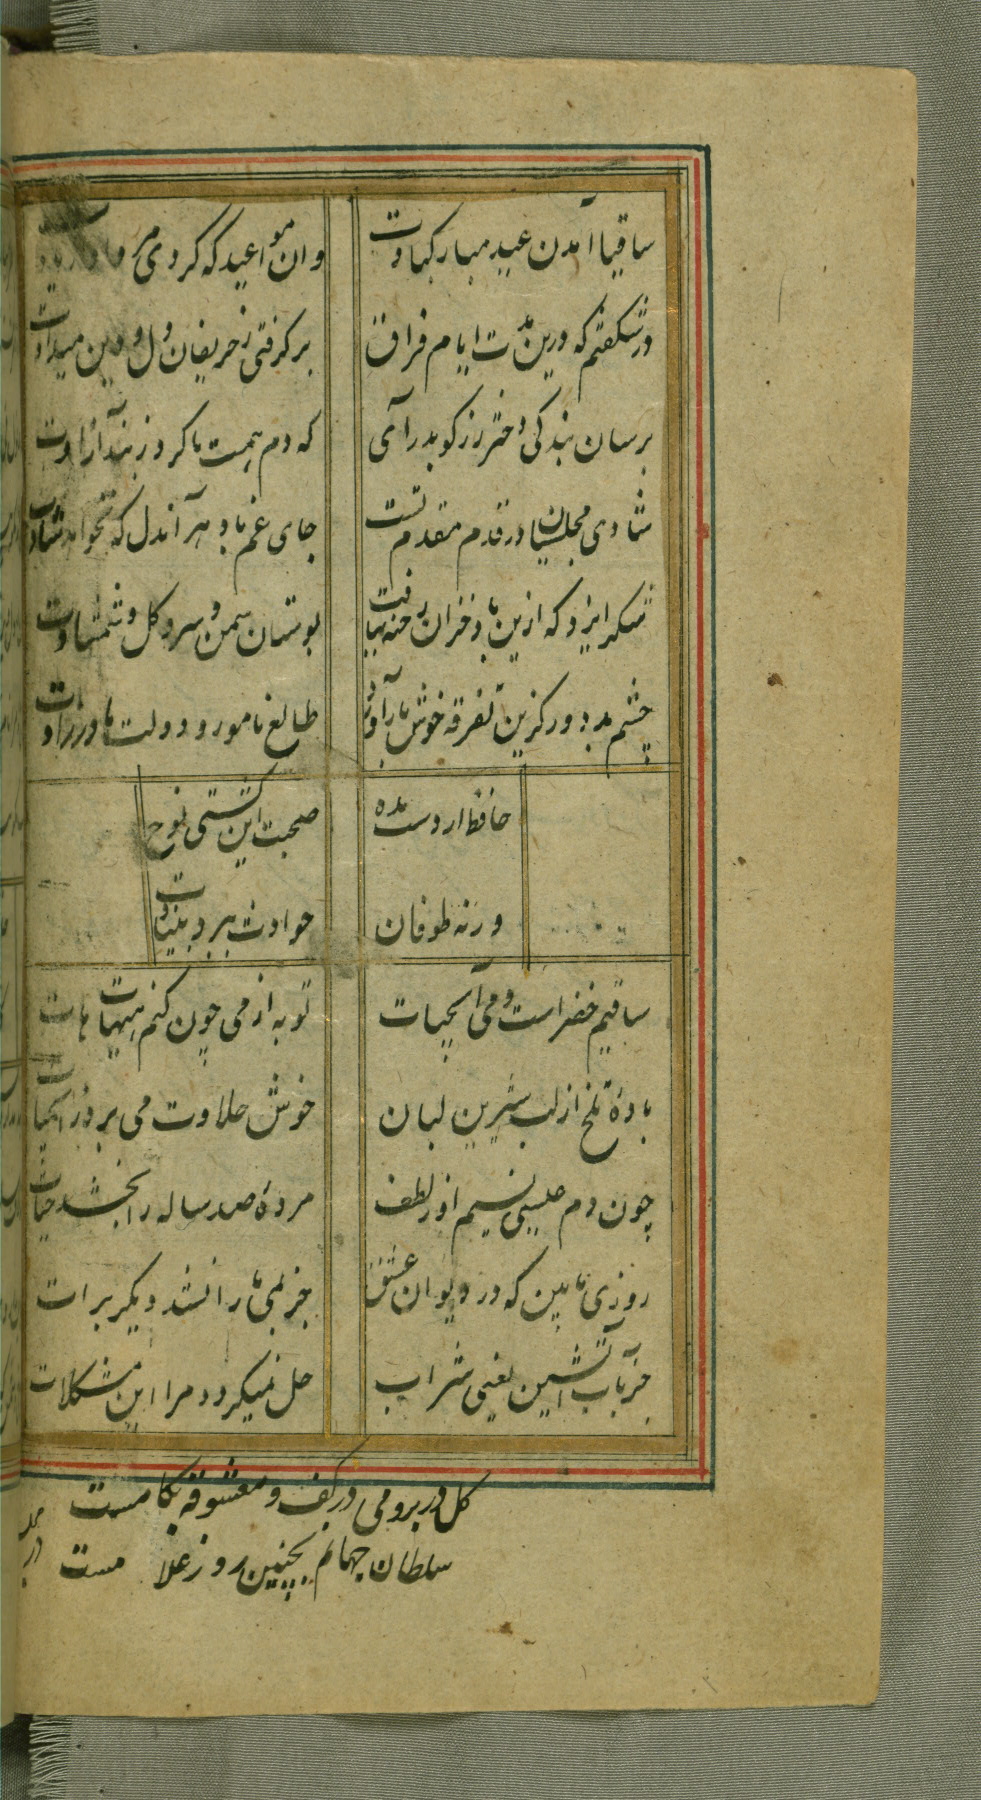 ساقیا آمدن عید مبارکبادت
وان مواعید که کردی مرواد از یادت
در شکفتم که درین مدت ایام فراق
برکرفتی ز حریفان دل و دل میدادت
برسان بندکی دختر رز کو بدرآی
که دم همت ما کرد ز بند آزادت
شادی مجلسیان در قدم مقدم تست
جای غم باد هر آندل که نخواهد شادت
شکر ایزد که ازین باد خزان رخنه نیافت
بوستان سمن و سرو و کل و شمشادت
چشم بد دور کزین تفرقه خوش باز آورد
طالع نامور و دولت مادرزادت
حافظ از دست مده
صحبت این کشتی نوح
ورنه طوفان
حوادث ببرد بنیادت
ساقیم خضر است و می آبحیات
توبه از می چون کنم هیهات هات
بادهٔ تلخ از لب شیرین لبان
خوش حلاوت می برد ز آبحیات
چون دم عیسی نسیم او ز لطف
مردهٔ صد ساله را بخشد حیات
روزی ما بین که در دیوان عشق
جز بمی ما را نشد دیکر برات
جز بآب آتشین یعنی شراب
حل نمیکردد مرا این مشکلات
کل در بر و می در کف و معشوقه بکامست
سلطان جهانم بچنین روز غلامست